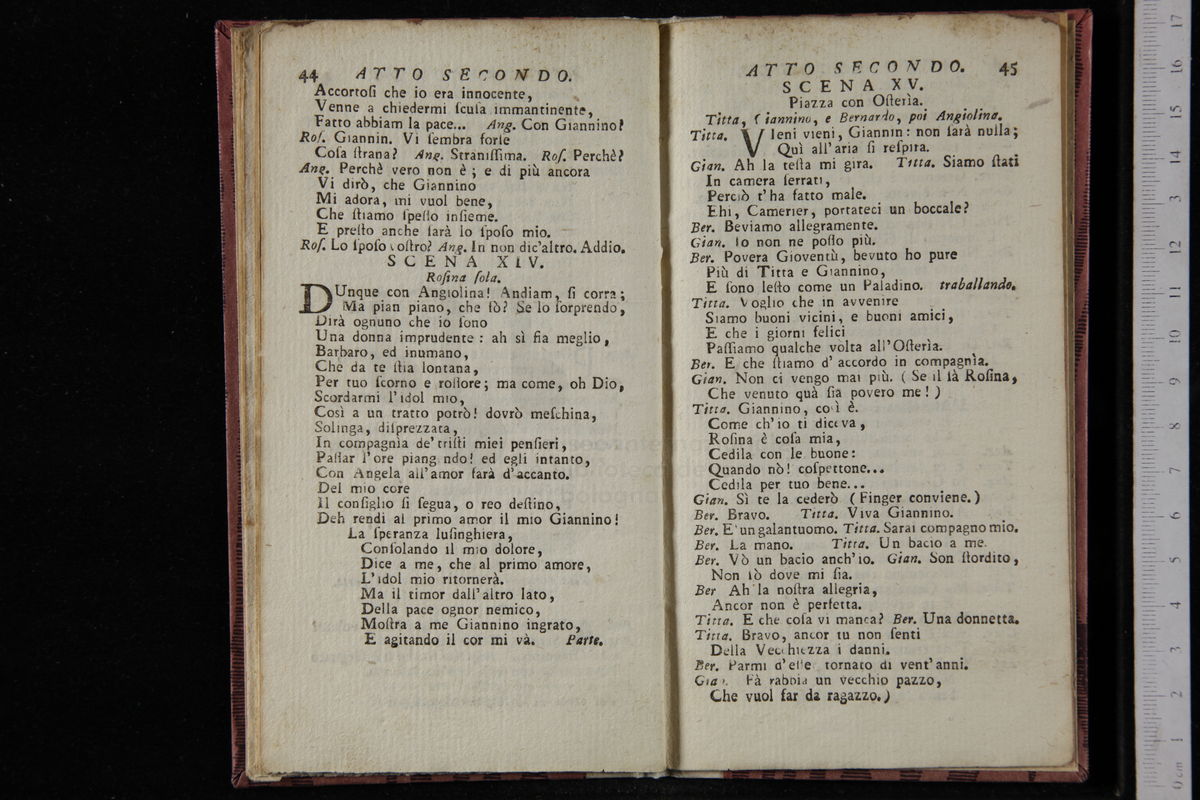 44 ATTO SECONDO.
Accortoſi che io era innocente,
Venne a chiedermi ſcuſa immantinente,
Fatto abbiam la pace... Ang. Con Giannino?
Roſ. Giannin. Vi ſembra forſe
Coſa ſtrana? Ang. Straniſſima. Roſ. Perchè?
Ang. Perchè vero non è; e di più ancora
Vi dirò, che Giannino
Mi adora, mi vuol bene,
Che ſtiamo ſpeſſo inſieme.
E preſto anche ſarà lo ſpoſo mio.
Roſ. Lo ſpoſo voſtro? Ang. In non dic'altro. Addio.
SCENA XIV.
Roſina ſola.
DUnque con Angiolina! Andiam, ſi corra;
Ma pian piano, che fò? Se lo ſorprendo,
Dirà ognuno che io ſono
Una donna imprudente: ah sì fia meglio,
Barbaro, ed inumano,
Che da te ſtia lontana,
Per tuo ſcorno e roſſore; ma come, oh Dio,
Scordarmi l'idol mio,
Così a un tratto potrò! dovrò meſchina,
Solinga, diſprezzata,
In compagnia de' triſti miei penſieri,
Paſſar l'ore piang ndo! ed egli intanto,
Con Angela all'amor farà d'accanto.
Del mio core
Il conſiglio ſi ſegua, o reo deſtino,
Deh rendi al primo amor il mio Giannino!
La ſperanza luſinghiera,
Conſolando il mio dolore,
Dice a me, che al primo amore,
L'idol mio ritornerà.
Ma il timor dall'altro lato,
Della pace ognor nemico,
Moſtra a me Giannino ingrato,
E agitando il cor mi và. Parte.
ATTO SECONDO. 45
SCENA XV.
Piazza con Oſterìa.
Titta, Giannino, e Bernardo, poi Angiolina.
Titta. VIeni vieni, Giannin: non ſarà nulla;
Quì all'aria ſi reſpira.
Gian. Ah la teſta mi gira. Titta. Siamo ſtati
In camera ſerrati,
Perciò t'ha fatto male.
Ehi, Camerier, portateci un boccale?
Ber. Beviamo allegramente.
Gian. Io non ne poſſo più.
Ber. Povera Gioventù, bevuto ho pure
Più di Titta e Giannino,
E ſono leſto come un Paladino. traballando.
Titta. Voglio che in avvenire
Siamo buoni vicini, e buoni amici,
E che i giorni felici
Paſſiamo qualche volta all'Oſterìa.
Ber. E che ſtiamo d' accordo in compagnìa.
Gian. Non ci vengo mai più. (Se il ſà Roſina,
Che venuto quà ſia povero me!)
Titta. Giannino, così è.
Come ch'io ti diceva,
Roſina è coſa mia,
Cedila con le buone:
Quando nò! coſpettone...
Cedila per tuo bene...
Gian. Sì te la cederò (Finger conviene.)
Ber. Bravo. Titta. Viva Giannino.
Ber. E' un galantuomo. Titta. Sarai compagno mio.
Ber. La mano. Titta. Un bacio a me.
Ber. Vò un bacio anch'io. Gian. Son ſtordito,
Non sò dove mi ſia.
Ber Ah la noſtra allegria,
Ancor non è perfetta.
Titta. E che coſa vi manca? Ber. Una donnetta.
Titta. Bravo, ancor tu non ſenti
Della Vecchiezza i danni.
Ber. Parmi d'eſſe tornato di vent'anni.
Gian. Fà rabbia un vecchio pazzo,
Che vuol far da ragazzo.)